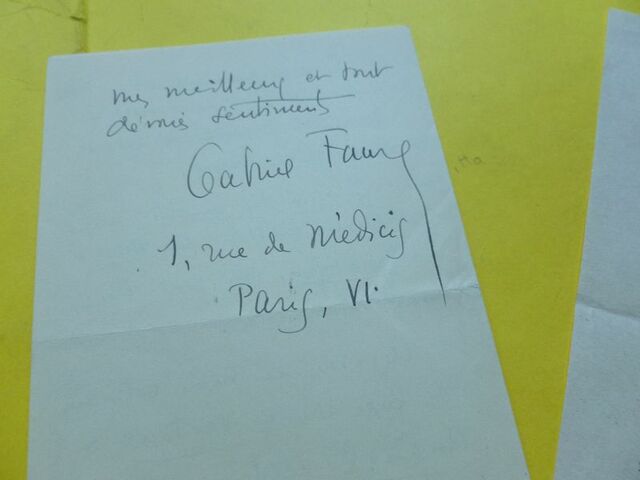 mes meilleurs et tout
dévoués sentiments
Gabriel Faure
1, rue de Médicis
Paris, VI.